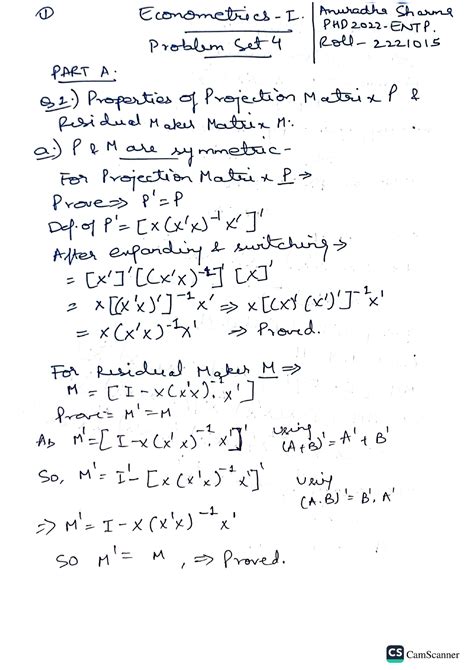 ① Econometrics-I. Anuradha Sharma
PHD2022-ENTP.
Problem Set 4 Roll-2221015
PART A:
Q1:) Properties of Projection Matrix P &
Residual Maker Matrix M:
a:) P & M are symmetric-
For Projection Matrix P ⇒
Prove ⇒ P' = P
Def. of P' = [X(X'X)⁻¹X']'
After expanding & switching ⇒
= [X']'[(X'X)⁻¹]'[X]'
= X[(X'X)']⁻¹X' ⇒ X[(X)'(X')']⁻¹X'
= X(X'X)⁻¹X' ⇒ Proved.
For Residual Maker M ⇒
M = [I-X(X'X)⁻¹X']
Prove = M' = M
As M' = [I-X(X'X)⁻¹X']' using (A+B)' = A'+B'
So, M' = I'-[X(X'X)⁻¹X']' using (A.B)' = B'.A'
⇒ M' = I-X(X'X)⁻¹X'
So M' = M, ⇒ Proved.
CS CamScanner